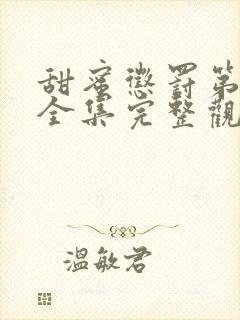 甜蜜懲罰第
全集完整觀
溫敏君